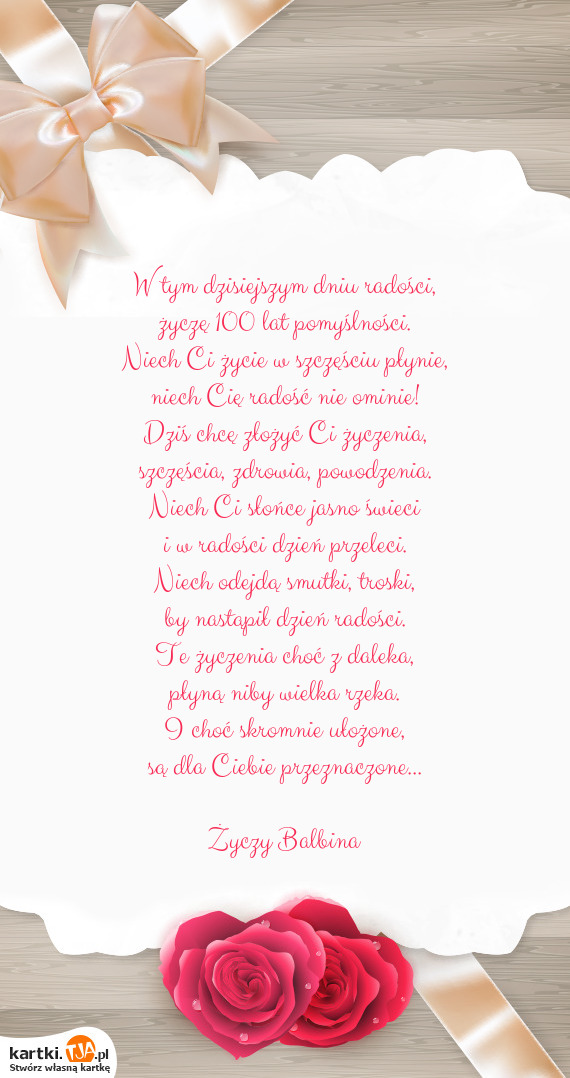 W tym dzisiejszym dniu radości,
życzę 100 lat pomyślności.
Niech Ci życie w szczęściu płynie,
niech Cię radość nie ominie!
Dziś chcę złożyć Ci życzenia,
szczęścia, zdrowia, powodzenia.
Niech Ci słońce jasno świeci
i w radości dzień przeleci.
Niech odejdą smutki, troski,
by nastąpił dzień radości.
Te życzenia choć z daleka,
płyną niby wielka rzeka.
I choć skromnie ułożone,
są dla Ciebie przeznaczone...
Życzy Balbina
kartki.TJA.pl
Stwórz własną kartkę